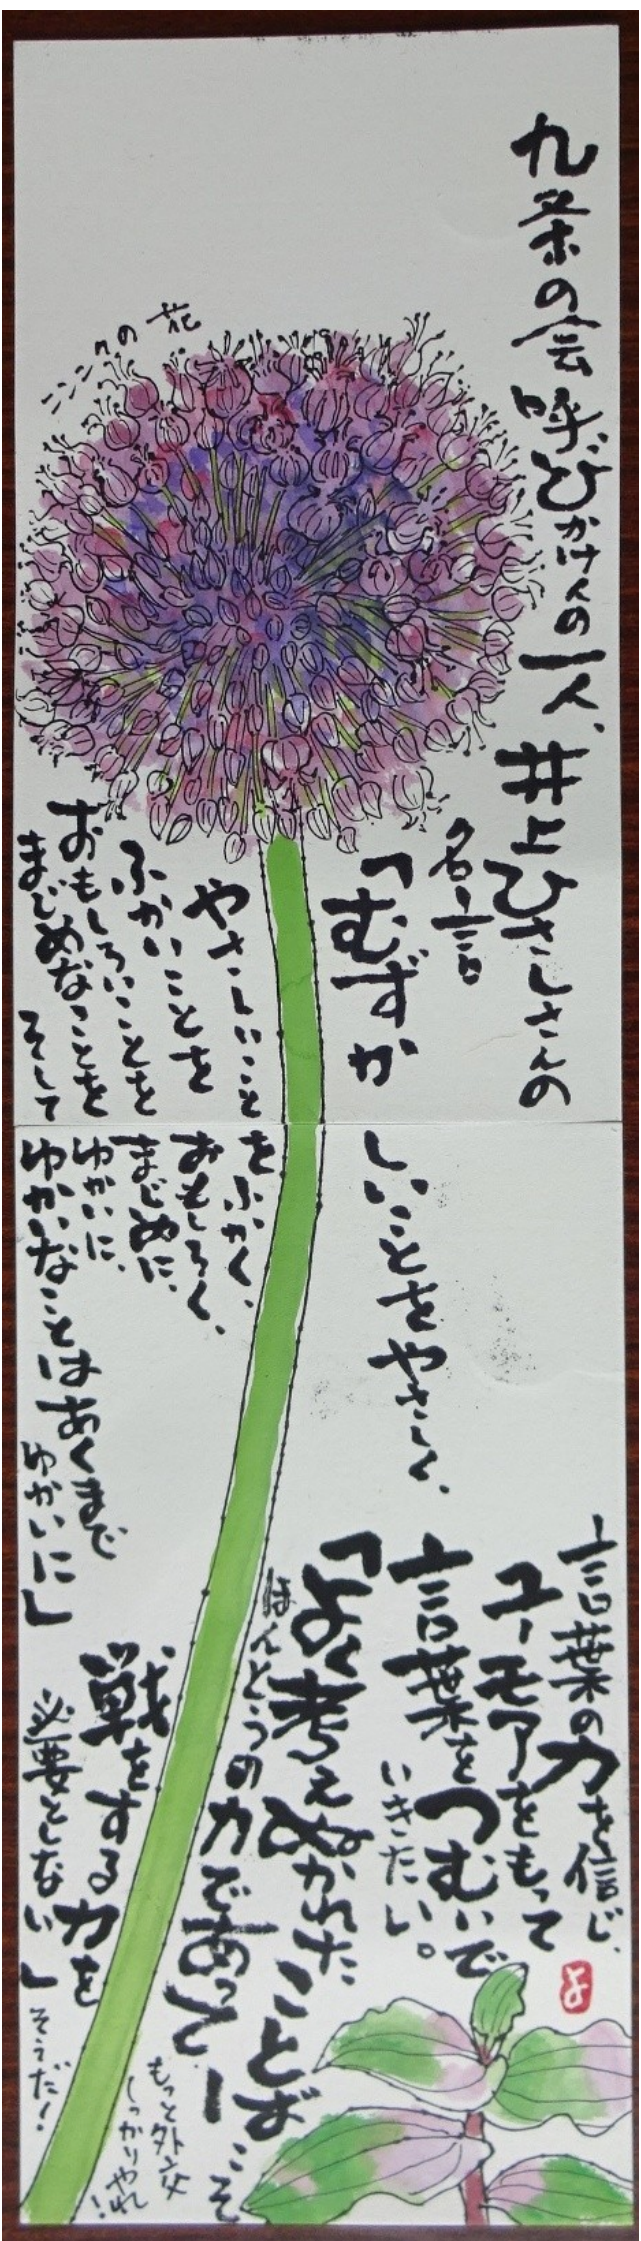 九条の会呼びかけ人の一人、
井上ひさしさんの
名言
「むずかしいことをやさしく、
やさしいことをふかく、
ふかいことをおもしろく、
おもしろいことをまじめに、
まじめなことをゆかいに、
そしてゆかいなことはあくまで
ゆかいに」
ニンニクの花
言葉の力を信じ、
ユーモアをもって
言葉をつむいで
いきたい。
「よく考えぬかれたことばこそ
ほんとうの力であってー
戦をする力を
必要としない」
そうだ!
もっと外交
しっかりやれ!
よ